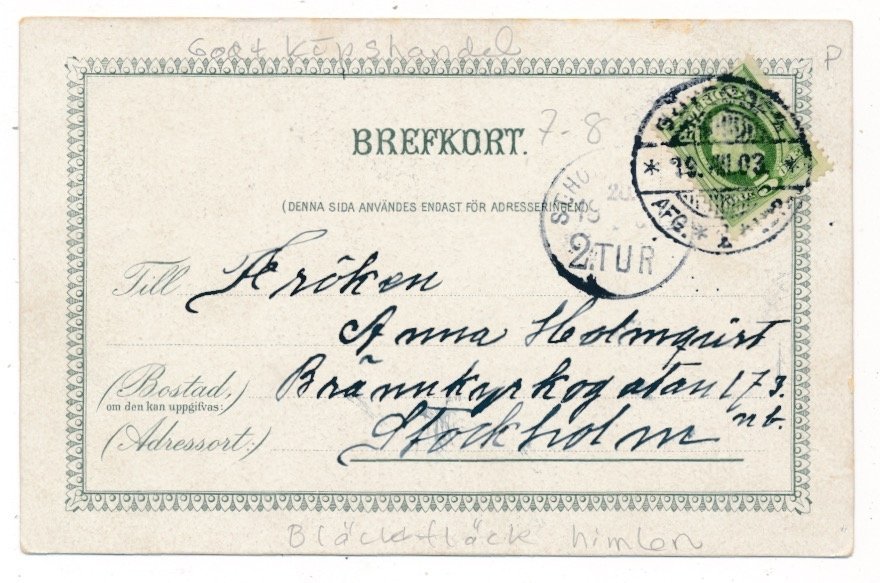 Gott köpshandel
P
BREFKORT.
7-8
(DENNA SIDA ANVÄNDES ENDAST FÖR ADRESSERINGEN)
19. XII. 03
AFG. * 2
2.TUR
Till Fröken
Anna Holmqvist
(Bostad, Brännkyrkogatan 173.
om den kan uppgifvas:) nb.
(Adressort:) Stockholm
Bläckfläck himlen